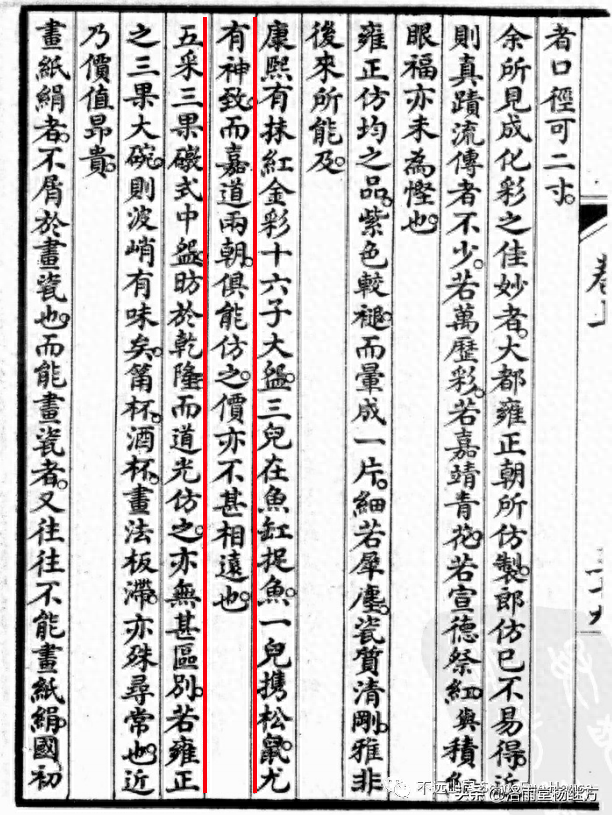 者口徑可二寸。
余所見成化彩之佳妙者。大都雍正朝所仿製。郎仿已不易得。近
則真蹟流傳者不少。若萬歷彩。若嘉靖青花。若宣德祭紅。與積
眼福亦未為慳也。
雍正仿均之品。紫色較褪。而暈成一片。細若犀塵。瓷質清剛。雅非
後來所能及。
康熙有抹紅金彩十六子大盌。三兒在魚缸捉魚。一兒携松鼠。尤
有神致。而嘉道兩朝。俱能仿之。價亦不甚相遠也。
五采三果礅式中盌。昉於乾隆。而道光仿之。亦無甚區別。若雍正
之三果大碗。則波峭有味矣。筩杯。酒杯。畫法板滯。亦殊尋常也。近
乃價值昂貴。
畫紙絹者。不屑於畫瓷也。而能畫瓷者。又往往不能畫紙絹。國初
卷上